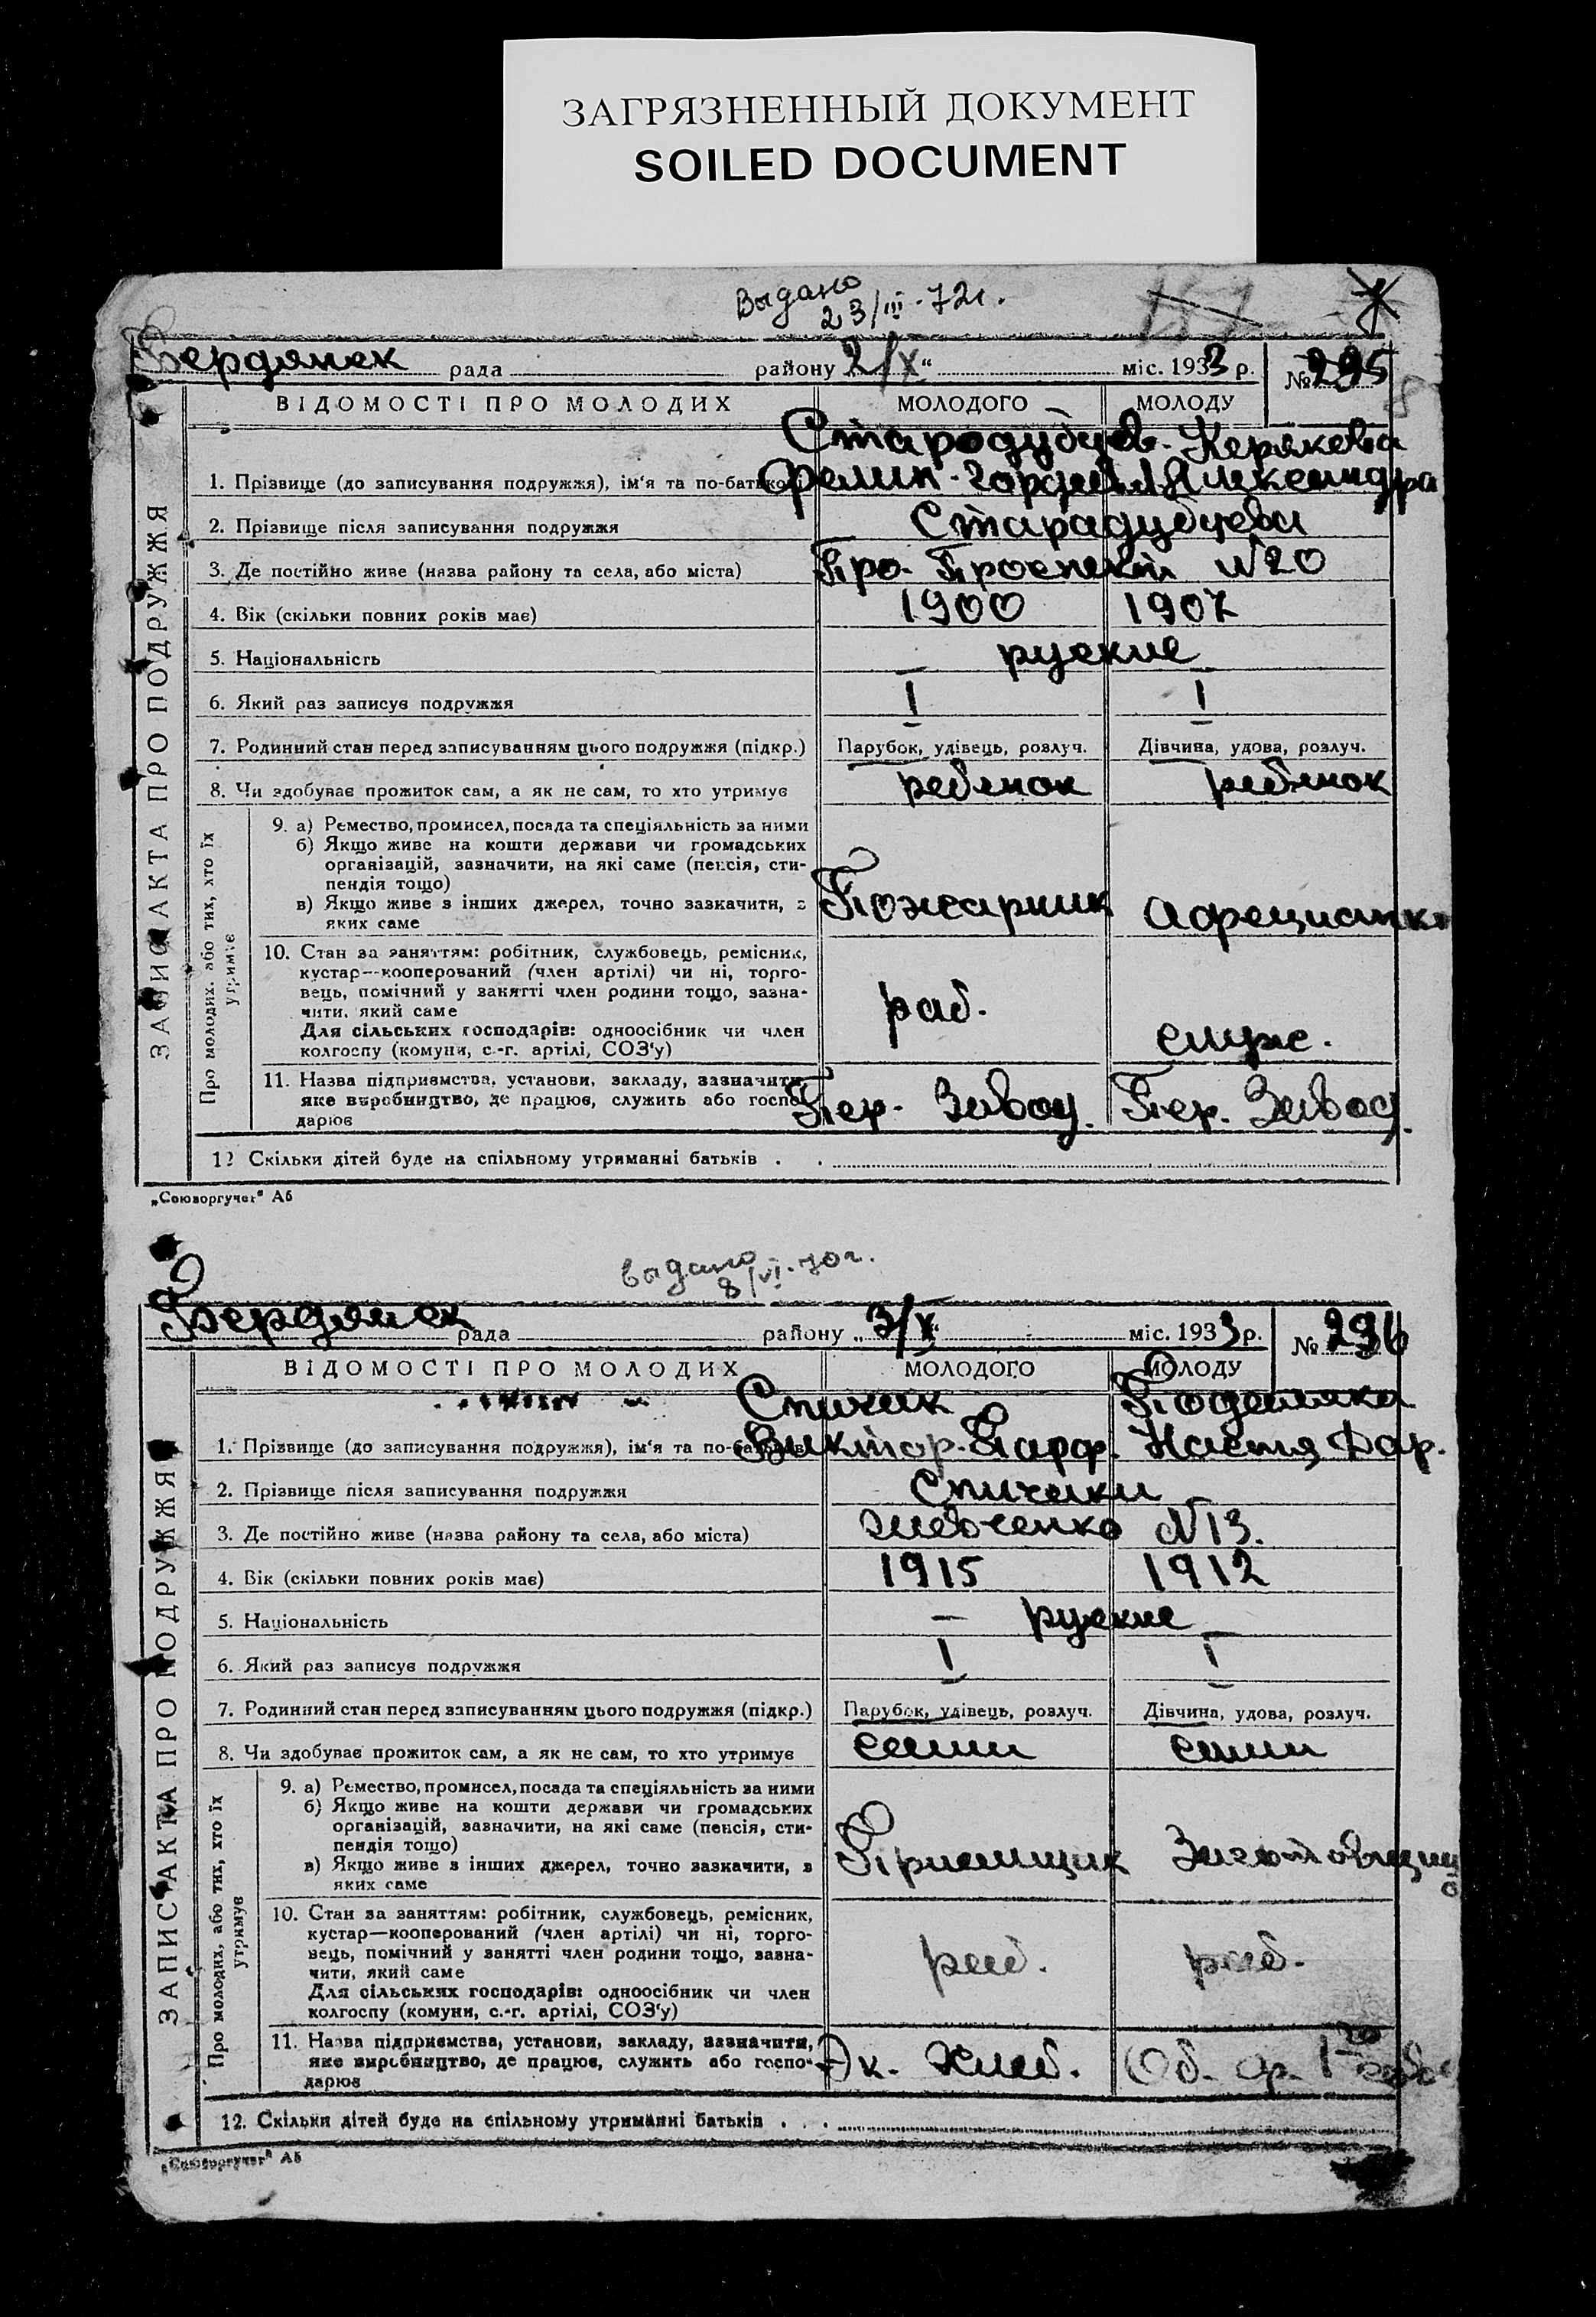 ЗАГРЯЗНЕННЫЙ ДОКУМЕНТ
SOILED DOCUMENT
Выдано
23/III-72г.
Бердянск рада району 2/X“ міс. 1933 р. № 295
ЗАПИС АКТА ПРО ПОДРУЖЖЯ
ВІДОМОСТІ ПРО МОЛОДИХ МОЛОДОГО МОЛОДУ
Стародубцев. Керякова
1. Прізвище (до записування подружжя), ім‘я та по-батькові Филип-Гордеев Александра
2. Прізвище після записування подружжя Старадубцева
3. Де постійно живе (назва району та села, або міста) Про. Проспект №20
4. Вік (скільки повних років має) 1900 1907
5. Національність руские
6. Який раз записує подружжя I I
7. Родинний стан перед записуванням цього подружжя (підкр.) Парубок, удівець, розлуч. Дівчина, удова, розлуч.
8. Чи здобуває прожиток сам, а як не сам, то хто утримує ребенок ребенок
Про молодих, або тих, хто їх утримує
9. а) Ремество, промисел, посада та спеціяльність за ними
б) Якщо живе на кошти держави чи громадських
організацій, зазначити, на які саме (пенсія, сти-
пендія тощо)
в) Якщо живе з інших джерел, точно зазначити, з Пожарник
яких саме
10. Стан за заняттям: робітник, службовець, ремісник,
кустар—кооперований (член артілі) чи ні, торго-
вець, помічний у занятті член родини тощо, зазна-
чити, який саме раб. служ.
Для сільських господарів: одноосібник чи член
колгоспу (комуни, с.-г. артілі, СОЗ‘у)
11. Назва підприємства, установи, закладу, зазначити,
яке виробництво, де працює, служить або госпо- Пер. Завод. Пер. Завод.
дарює
12 Скільки дітей буде на спільному утриманні батьків . .
„Союзоргучет“ Аб
выдано
8/VI-70г.
Бердянск рада району „3/X“ міс. 1933 р. № 296
ЗАПИС АКТА ПРО ПОДРУЖЖЯ
ВІДОМОСТІ ПРО МОЛОДИХ МОЛОДОГО МОЛОДУ
Спичак
1. Прізвище (до записування подружжя), ім‘я та по-батькові Виктор-Парф. Настя Дар.
2. Прізвище після записування подружжя Спичаки
3. Де постійно живе (назва району та села, або міста) Шевченко №13.
4. Вік (скільки повних років має) 1915 1912
5. Національність — руские
6. Який раз записує подружжя I I
7. Родинний стан перед записуванням цього подружжя (підкр.) Парубок, удівець, розлуч. Дівчина, удова, розлуч.
8. Чи здобуває прожиток сам, а як не сам, то хто утримує сами сами
Про молодих, або тих, хто їх утримує
9. а) Ремество, промисел, посада та спеціяльність за ними
б) Якщо живе на кошти держави чи громадських
організацій, зазначити, на які саме (пенсія, сти-
пендія тощо)
в) Якщо живе з інших джерел, точно зазначити, з Приемщик
яких саме
10. Стан за заняттям: робітник, службовець, ремісник,
кустар—кооперований (член артілі) чи ні, торго-
вець, помічний у занятті член родини тощо, зазна- раб. раб.
чити, який саме
Для сільських господарів: одноосібник чи член
колгоспу (комуни, с.-г. артілі, СОЗ‘у)
11. Назва підприємства, установи, закладу, зазначити,
яке виробництво, де працює, служить або госпо- Об. ф.
дарює
12. Скільки дітей буде на спільному утриманні батьків . . .
„Союзоргучет“ Аб